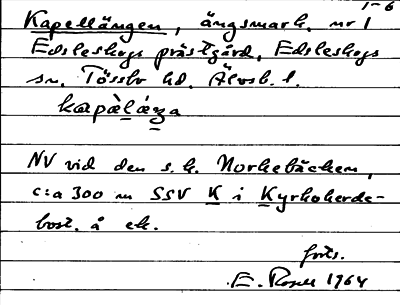 1-6
Kapellängen, ängsmark, nr 1
Edsleskogs prästgård, Edsleskogs
sn, Tössbo hd, Älvsb. l.
NV vid den s. k. Norkebäcken,
c:a 300 m SSV K i Kyrkoherde-
bost. å ek.
forts.
E. 1964